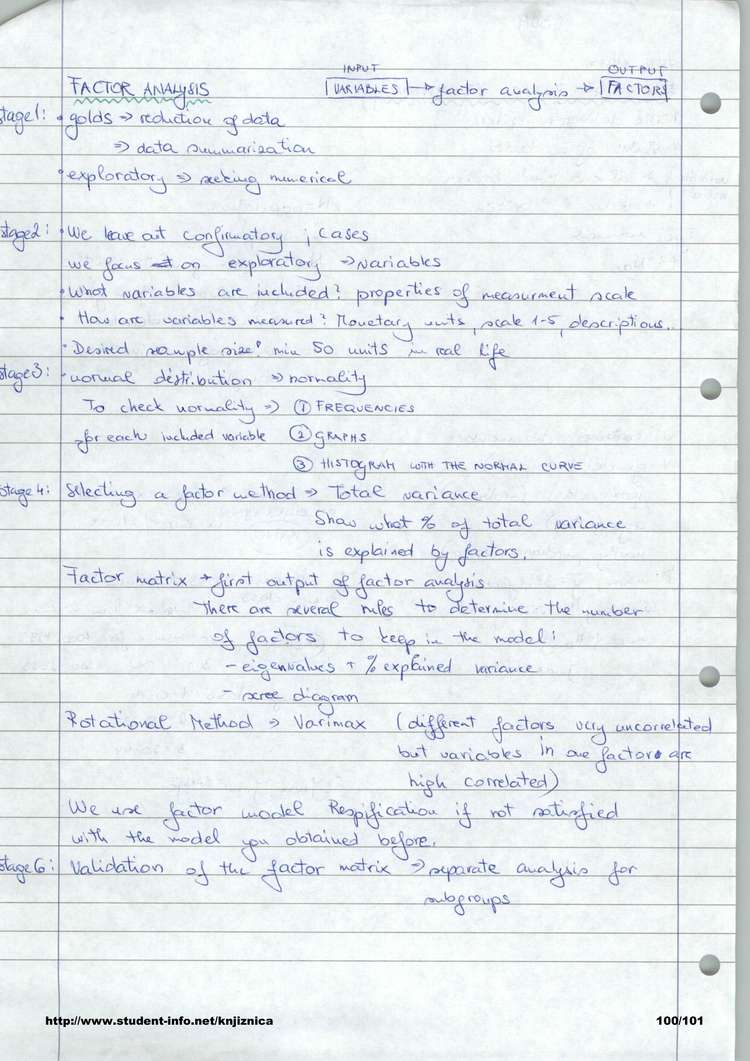 INPUT OUTPUT
FACTOR ANALYSIS VARIABLES → factor analysis → FACTORS
stage 1: • golds ⇒ reduction of data
⇒ data summarization
• exploratory ⇒ seeking numerical
stage 2: • We leave out confirmatory ; cases
we focus on exploratory ⇒ variables
• What variables are included? properties of measurment scale
• How are variables measured? Monetary units, scale 1-5, descriptions..
• Desired sample size? min 50 units in real life
stage 3: • normal distribution ⇒ normality
To check normality ⇒ ① FREQUENCIES
for each included variable ② GRAPHS
③ HISTOGRAM WITH THE NORMAL CURVE
stage 4: Selecting a factor method ⇒ Total variance
Show what % of total variance
is explained by factors.
Factor matrix → first output of factor analysis
There are several rules to determine the number
of factors to keep in the model:
- eigenvalues + % explained variance
- scree diagram
Rotational Method ⇒ Varimax (different factors very uncorrelated
but variables in one factor are
high correlated)
We use factor model Respification if not satisfied
with the model you obtained before.
stage 6: Validation of the factor matrix ⇒ separate analysis for
subgroups
http://www.student-info.net/knjiznica 100/101